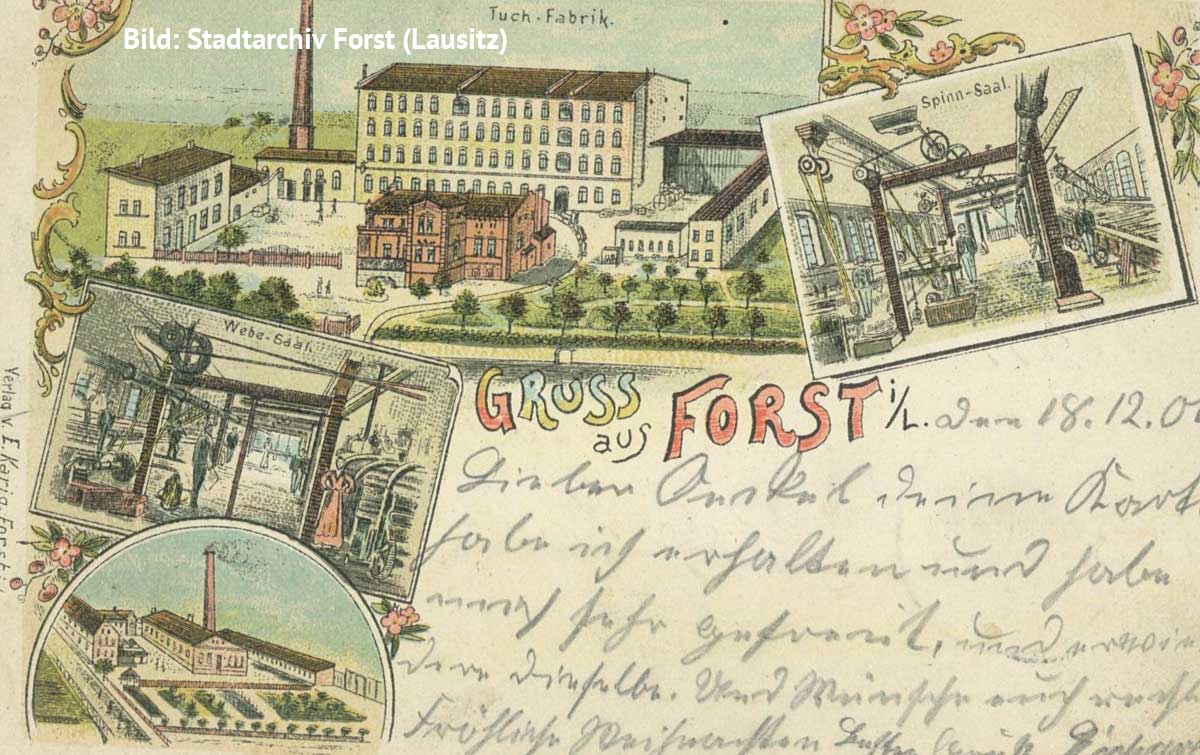 Tuch-Fabrik.
Bild: Stadtarchiv Forst (Lausitz)
Spinn-Saal.
Webe-Saal.
GRUSS
aus FORST i/L. den 18.12.0
Lieber Onkel deine Kart
habe ich erhalten und habe
mich sehr gefreut, und erwie
dere dieselbe. Und Wünsche euch recht
Fröhliche Weihnachten
Verlag v. E. Karig, Forst i.